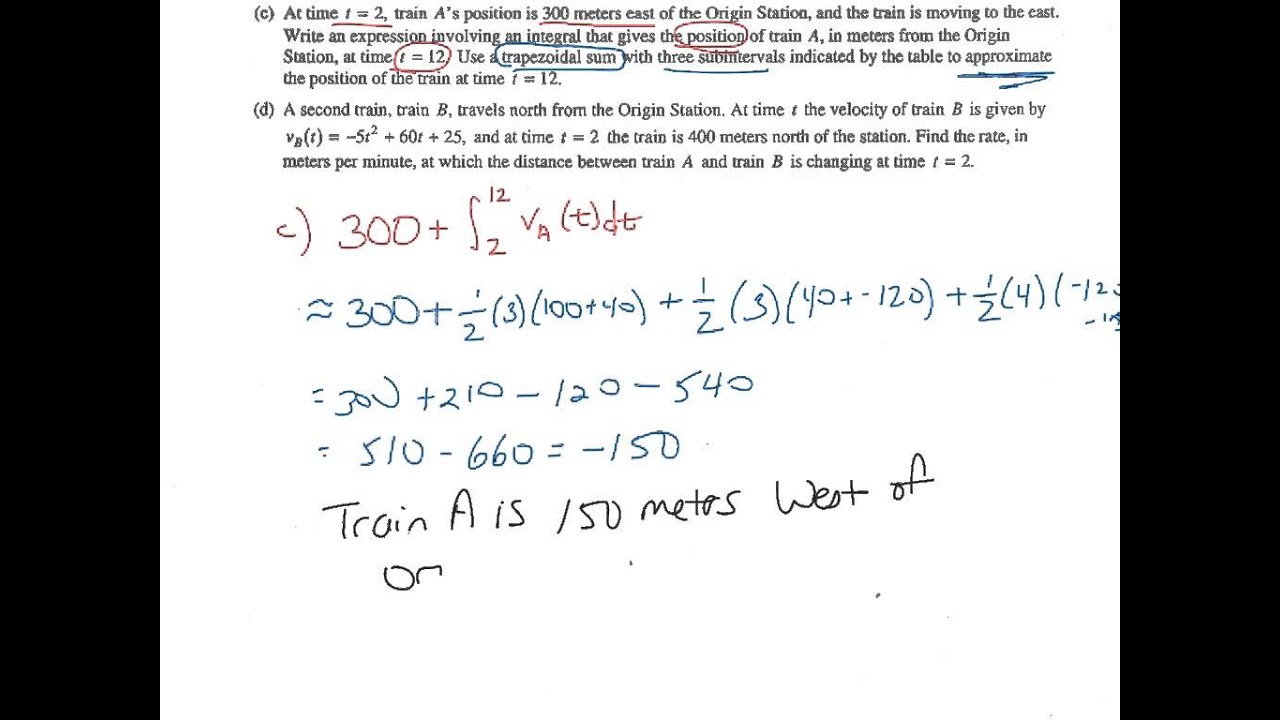 (c) At time t = 2, train A's position is 300 meters east of the Origin Station, and the train is moving to the east.
Write an expression involving an integral that gives the position of train A, in meters from the Origin
Station, at time t = 12. Use a trapezoidal sum with three subintervals indicated by the table to approximate
the position of the train at time t = 12.
(d) A second train, train B, travels north from the Origin Station. At time t the velocity of train B is given by
v_B(t) = −5t² + 60t + 25, and at time t = 2 the train is 400 meters north of the station. Find the rate, in
meters per minute, at which the distance between train A and train B is changing at time t = 2.
c) 300 + ∫₂¹² v_A(t)dt
≈ 300 + 1/2 (3)(100+40) + 1/2 (3)(40+-120) + 1/2 (4)(-120
= 300 + 210 - 120 - 540
= 510 - 660 = -150
Train A is 150 meters West of
or